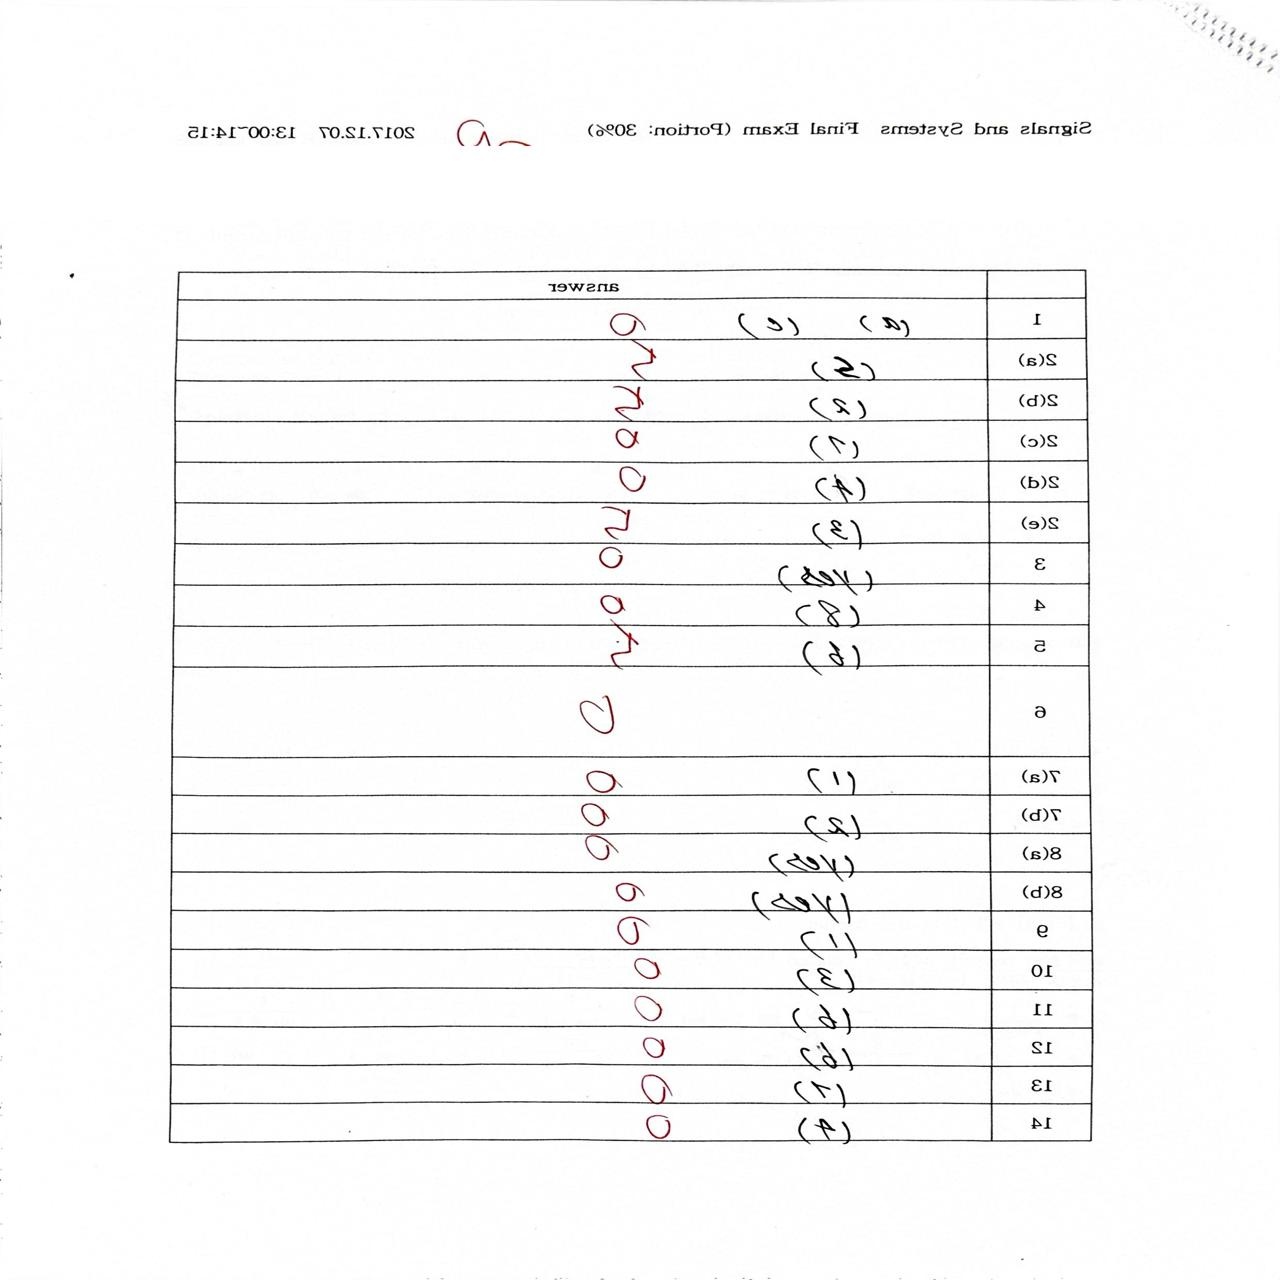 Signals and Systems Final Exam (Portion: 30%) 2017.12.07 13:00~14:15
answer
1 (a) (c)
2(a) (5)
2(b) (2)
2(c) (1)
2(d) (4)
2(e) (3)
3
4 (8)
5 (b)
6
7(a) (1)
7(b) (2)
8(a)
8(b)
9 (1)
10 (3)
11 (b)
12
13 (1)
14 (4)